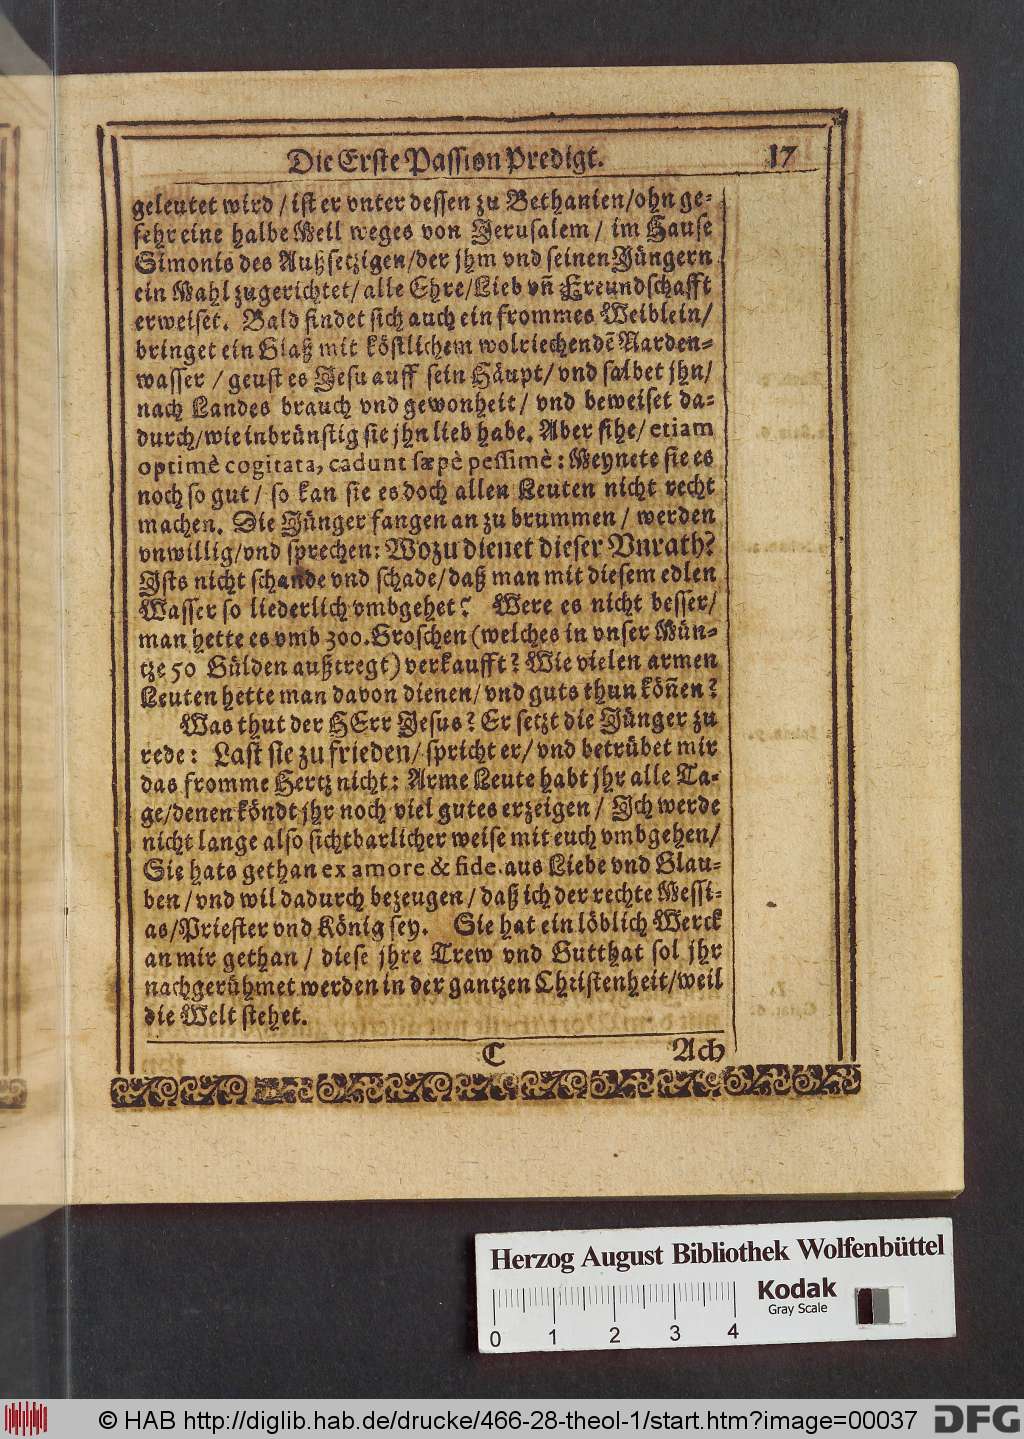 Die Erste Passion Predigt. 17
geleutet wird / ist er vnter dessen zu Bethanien/ohn ge-
fehr eine halbe Meil weges von Jerusalem / im Hause
Simonis des Außsetzigen/der jhm vnd seinen Jüngern
ein Mahl zugerichtet/ alle Ehre/Lieb vñ Freundschafft
erweiset. Bald findet sich auch ein frommes Weiblein/
bringet ein Glaß mit köstlichem wolriechendẽ Narden-
wasser / geust es Jesu auff sein Häupt/ vnd salbet jhn/
nach Landes brauch vnd gewonheit/ vnd beweiset da-
durch/wie inbrünstig sie jhn lieb habe. Aber sihe/ etiam
optimè cogitata, cadunt sæpè pessimè: Meynete sie es
noch so gut / so kan sie es doch allen Leuten nicht recht
machen. Die Jünger fangen an zu brummen / werden
vnwillig/vnd sprechen: Wozu dienet dieser Vnrath?
Ists nicht schande vnd schade/daß man mit diesem edlen
Wasser so liederlich vmbgehet? Were es nicht besser/
man hette es vmb 300. Groschen (welches in vnser Mün-
tze 50 Gülden außtregt) verkaufft? Wie vielen armen
Leuten hette man davon dienen/vnd guts thun köñen?
Was thut der HErr Jesus? Er setzt die Jünger zu
rede: Last sie zu frieden/ spricht er/ vnd betrübet mir
das fromme Hertz nicht: Arme Leute habt jhr alle Ta-
ge/denen köndt jhr noch viel gutes erzeigen / Ich werde
nicht lange also sichtbarlicher weise mit euch vmbgehen/
Sie hats gethan ex amore & fide. aus Liebe vnd Glau-
ben / vnd wil dadurch bezeugen / daß ich der rechte Messi-
as/Priester vnd König sey. Sie hat ein löblich Werck
an mir gethan / diese jhre Trew vnd Gutthat sol jhr
nachgerühmet werden in der gantzen Christenheit/weil
die Welt stehet.
C Ach
Herzog August Bibliothek Wolfenbüttel
Kodak
Gray Scale
0 1 2 3 4
© HAB http://diglib.hab.de/drucke/466-28-theol-1/start.htm?image=00037 DFG